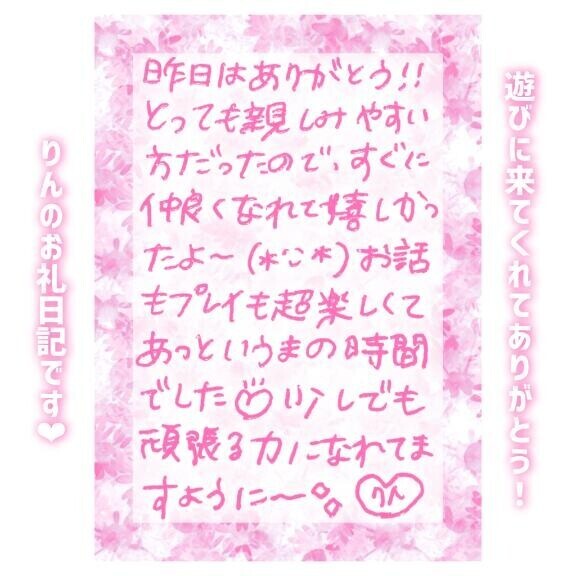 遊びに来てくれてありがとう!
昨日はありがとう!!
とっても親しみやすい
方だったので、すぐに
仲良くなれて嬉しかっ
たよ～(*'ᵕ'*)お話
もプレイも超楽しくて
あっというまの時間
でした♡少しでも
頑張る力になれてま
すように〜
りん
りんのお礼日記です❤